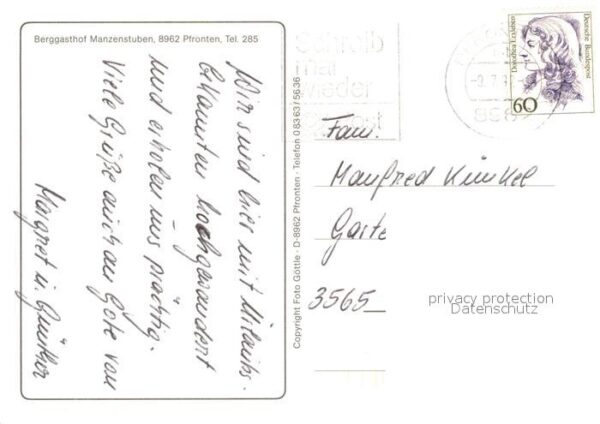 Berggasthof Manzenstuben, 8962 Pfronten, Tel. 285
Wir sind hier mit Urlaubs-
bekannten hochgewandert
und erholen uns prächtig.
Viele Grüße auch an Gote von
Margret u. Günther
Copyright Foto Göttle · D-8962 Pfronten · Telefon 08363/5636
Schreib
mal
wieder
Post
Dorothea Erxleben
Deutsche Bundespost
60
Fam.
Manfred Künkel
Garte
3565
privacy protection
Datenschutz